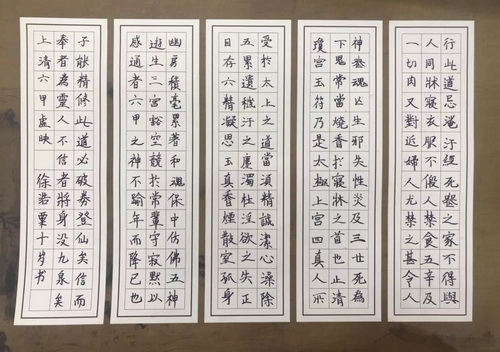 行此道忌淹汙經死喪之家不得與
人同牀寢衣服不假人禁食五辛及
一切肉又對近婦人尤禁之甚令人
神喪魂亡生邪失性災及三世死為
下鬼常當燒香於寢牀之首也上清
瓊宮玉符乃是太極上宮四真人所
受於太上之道當須精誠潔心澡除
五累遺穢汙之塵濁杜淫欲之失正
目存六精凝思玉真香煙散室孤身
幽房積毫累著和魂保中仿佛五神
遊生三宮豁空競於常輩守寂默以
感通者六甲之神不踰年而降己也
子能精修此道必破券登仙矣信而
奉者為靈人不信者將身沒九泉矣
上清六甲虛映 徐浩粟十岁书